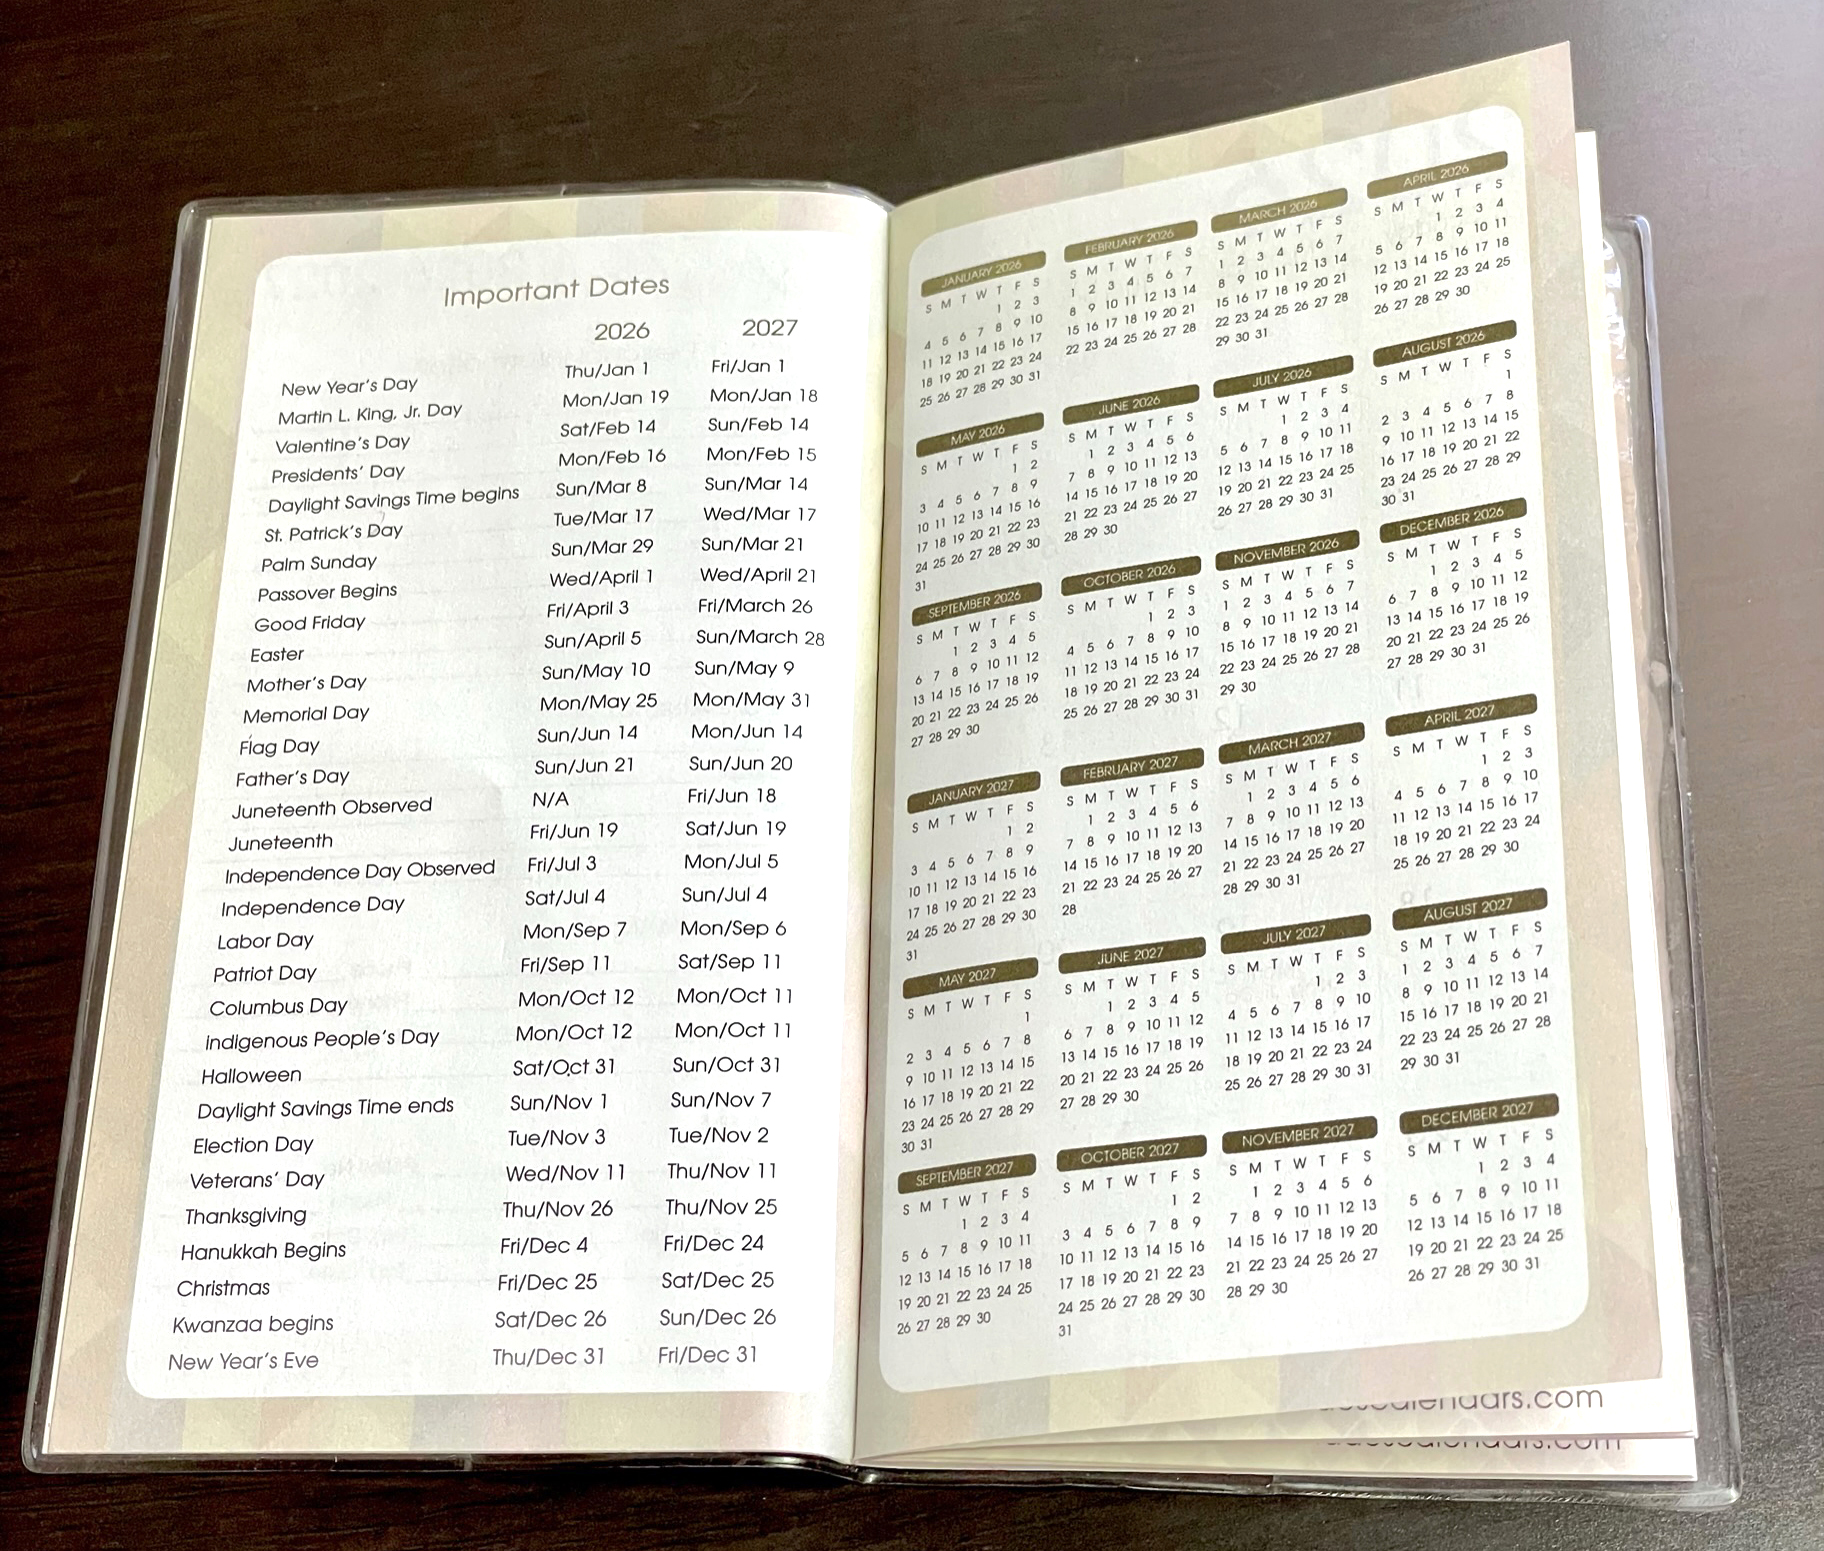 Important Dates
2026 2027
New Year's Day Thu/Jan 1 Fri/Jan 1
Martin L. King, Jr. Day Mon/Jan 19 Mon/Jan 18
Valentine's Day Sat/Feb 14 Sun/Feb 14
Presidents' Day Mon/Feb 16 Mon/Feb 15
Daylight Savings Time begins Sun/Mar 8 Sun/Mar 14
St. Patrick's Day Tue/Mar 17 Wed/Mar 17
Palm Sunday Sun/Mar 29 Sun/Mar 21
Passover Begins Wed/April 1 Wed/April 21
Good Friday Fri/April 3 Fri/March 26
Easter Sun/April 5 Sun/March 28
Mother's Day Sun/May 10 Sun/May 9
Memorial Day Mon/May 25 Mon/May 31
Flag Day Sun/Jun 14 Mon/Jun 14
Father's Day Sun/Jun 21 Sun/Jun 20
Juneteenth Observed N/A Fri/Jun 18
Juneteenth Fri/Jun 19 Sat/Jun 19
Independence Day Observed Fri/Jul 3 Mon/Jul 5
Independence Day Sat/Jul 4 Sun/Jul 4
Labor Day Mon/Sep 7 Mon/Sep 6
Patriot Day Fri/Sep 11 Sat/Sep 11
Columbus Day Mon/Oct 12 Mon/Oct 11
indigenous People's Day Mon/Oct 12 Mon/Oct 11
Halloween Sat/Oct 31 Sun/Oct 31
Daylight Savings Time ends Sun/Nov 1 Sun/Nov 7
Election Day Tue/Nov 3 Tue/Nov 2
Veterans' Day Wed/Nov 11 Thu/Nov 11
Thanksgiving Thu/Nov 26 Thu/Nov 25
Hanukkah Begins Fri/Dec 4 Fri/Dec 24
Christmas Fri/Dec 25 Sat/Dec 25
Kwanzaa begins Sat/Dec 26 Sun/Dec 26
New Year's Eve Thu/Dec 31 Fri/Dec 31
JANUARY 2026
S M T W T F S
1 2 3
4 5 6 7 8 9 10
11 12 13 14 15 16 17
18 19 20 21 22 23 24
25 26 27 28 29 30 31
FEBRUARY 2026
S M T W T F S
1 2 3 4 5 6 7
8 9 10 11 12 13 14
15 16 17 18 19 20 21
22 23 24 25 26 27 28
MARCH 2026
S M T W T F S
1 2 3 4 5 6 7
8 9 10 11 12 13 14
15 16 17 18 19 20 21
22 23 24 25 26 27 28
29 30 31
APRIL 2026
S M T W T F S
1 2 3 4
5 6 7 8 9 10 11
12 13 14 15 16 17 18
19 20 21 22 23 24 25
26 27 28 29 30
MAY 2026
S M T W T F S
1 2
3 4 5 6 7 8 9
10 11 12 13 14 15 16
17 18 19 20 21 22 23
24 25 26 27 28 29 30
31
JUNE 2026
S M T W T F S
1 2 3 4 5 6
7 8 9 10 11 12 13
14 15 16 17 18 19 20
21 22 23 24 25 26 27
28 29 30
JULY 2026
S M T W T F S
1 2 3 4
5 6 7 8 9 10 11
12 13 14 15 16 17 18
19 20 21 22 23 24 25
26 27 28 29 30 31
AUGUST 2026
S M T W T F S
1
2 3 4 5 6 7 8
9 10 11 12 13 14 15
16 17 18 19 20 21 22
23 24 25 26 27 28 29
30 31
SEPTEMBER 2026
S M T W T F S
1 2 3 4 5
6 7 8 9 10 11 12
13 14 15 16 17 18 19
20 21 22 23 24 25 26
27 28 29 30
OCTOBER 2026
S M T W T F S
1 2 3
4 5 6 7 8 9 10
11 12 13 14 15 16 17
18 19 20 21 22 23 24
25 26 27 28 29 30 31
NOVEMBER 2026
S M T W T F S
1 2 3 4 5 6 7
8 9 10 11 12 13 14
15 16 17 18 19 20 21
22 23 24 25 26 27 28
29 30
DECEMBER 2026
S M T W T F S
1 2 3 4 5
6 7 8 9 10 11 12
13 14 15 16 17 18 19
20 21 22 23 24 25 26
27 28 29 30 31
JANUARY 2027
S M T W T F S
1 2
3 4 5 6 7 8 9
10 11 12 13 14 15 16
17 18 19 20 21 22 23
24 25 26 27 28 29 30
31
FEBRUARY 2027
S M T W T F S
1 2 3 4 5 6
7 8 9 10 11 12 13
14 15 16 17 18 19 20
21 22 23 24 25 26 27
28
MARCH 2027
S M T W T F S
1 2 3 4 5 6
7 8 9 10 11 12 13
14 15 16 17 18 19 20
21 22 23 24 25 26 27
28 29 30 31
APRIL 2027
S M T W T F S
1 2 3
4 5 6 7 8 9 10
11 12 13 14 15 16 17
18 19 20 21 22 23 24
25 26 27 28 29 30
MAY 2027
S M T W T F S
1
2 3 4 5 6 7 8
9 10 11 12 13 14 15
16 17 18 19 20 21 22
23 24 25 26 27 28 29
30 31
JUNE 2027
S M T W T F S
1 2 3 4 5
6 7 8 9 10 11 12
13 14 15 16 17 18 19
20 21 22 23 24 25 26
27 28 29 30
JULY 2027
S M T W T F S
1 2 3
4 5 6 7 8 9 10
11 12 13 14 15 16 17
18 19 20 21 22 23 24
25 26 27 28 29 30 31
AUGUST 2027
S M T W T F S
1 2 3 4 5 6 7
8 9 10 11 12 13 14
15 16 17 18 19 20 21
22 23 24 25 26 27 28
29 30 31
SEPTEMBER 2027
S M T W T F S
1 2 3 4
5 6 7 8 9 10 11
12 13 14 15 16 17 18
19 20 21 22 23 24 25
26 27 28 29 30
OCTOBER 2027
S M T W T F S
1 2
3 4 5 6 7 8 9
10 11 12 13 14 15 16
17 18 19 20 21 22 23
24 25 26 27 28 29 30
31
NOVEMBER 2027
S M T W T F S
1 2 3 4 5 6
7 8 9 10 11 12 13
14 15 16 17 18 19 20
21 22 23 24 25 26 27
28 29 30
DECEMBER 2027
S M T W T F S
1 2 3 4
5 6 7 8 9 10 11
12 13 14 15 16 17 18
19 20 21 22 23 24 25
26 27 28 29 30 31